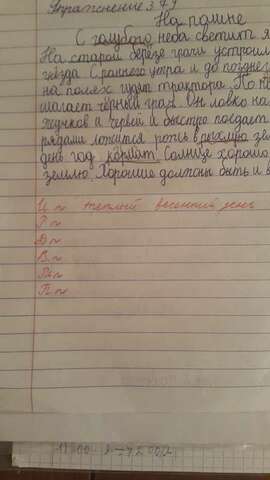 Упражнение 379
На пашне
С голубого неба светит я
На старой березе грачи устроили
гнёзда. С раннего утра и до позднег
на полях гудят трактора. По
шагает чёрный грач. Он ловко на
жучков и червей и быстро поедает
рядами ложится рожь в рыхлую зе
день год кормит. Солнце хорошо
землю. Хорошие должны быть и в
И ~ тёплый весенний день
Р ~
Д ~
В ~
Тв ~
П ~